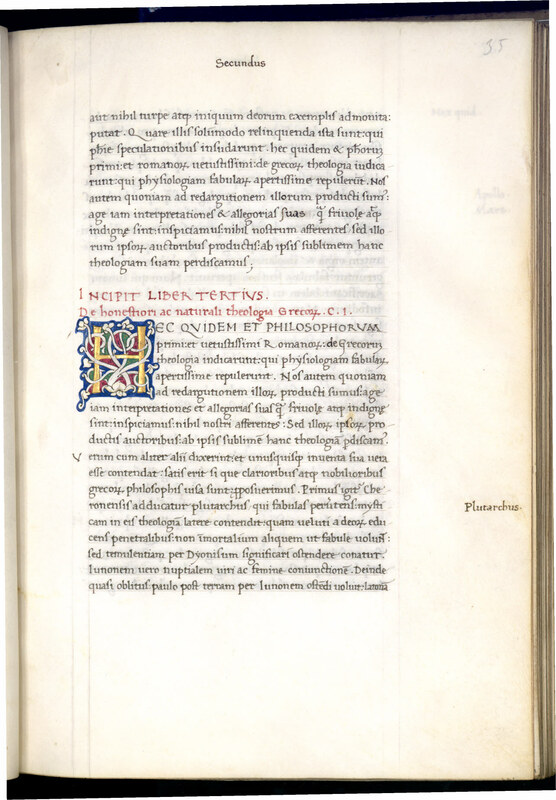 35
Secundus
aut nihil turpe atq; iniquum deorum exemplis admonita:
putat. Quare illis solummodo relinquenda ista sunt: qui
phie speculationibus insudarunt. hec quidem & phorum
primi: et romanoꝝ uetustissimi: de grecoꝝ theologia iudica
runt: qui physiologiam fabulaꝝ apertissime repulerūt. Nos
autem quoniam ad redargutionem illorum producti sumꝰ:
age iam interpretationes & allegorias suas q̄ friuole atq;
indigne sint: inspiciamus: nihil nostrum afferentes sed illo
rum ipsoꝝ auctoribus productis: ab ipsis sublimem hanc
theologiam suam perdiscamus;
INCIPIT LIBER TERTIVS.
De honestiori ac naturali theologia Grecoꝝ. C. I.
HEC QVIDEM ET PHILOSOPHORVM
primi: et uetustissimi Romanoꝝ: de Grecorū
theologia indicarunt: qui physiologiam fabulaꝝ
apertissime repulerunt. Nos autem quoniam
ad redargutionem illoꝝ producti sumus: age
iam interpretationes et allegorias suas q̄ friuole atq; indigne
sint: inspiciamus: nihil nostri afferentes: Sed illoꝝ ipsoꝝ pro
ductis auctoribus: ab ipsis sublimē hanc theologiā pdiscamꝰ.
Verum cum aliter alii dixerint: et unusquisq; inuenta sua uera
esse contendat: satis erit si que clarioribus atq; nobilioribus
grecoꝝ philosophis uisa sunt: pposuerimus. Primus igit Che
ronensis adducatur plutarchus qui fabulas ueritens: mysti
cam in eis theologiā latere contendit: quam ueluti a deoꝝ edu
cens penetralibus: non īmortalium aliquem ut fabule uolunt:
sed temulentiam per Dyonisum significari ostendere conatur.
Iunonem uero nuptialem uiri ac femine coniunctionē. Deinde
quasi oblitus paulo post terram per Iunonem ostēdi uoluit: latonā
Plutarchus.